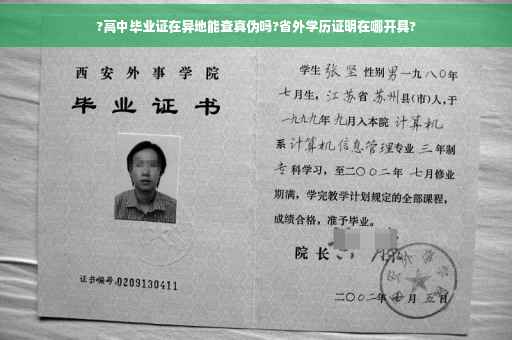 ?高中毕业证在异地能查真伪吗?省外学历证明在哪开具?
西安外事学院
毕业证书
证书编号:0209130411
学生 张坚 性别 男 一九八〇年
七月生，江苏省 苏州县(市)人,于
一九九九年 九月入本院 计算机
系 计算机信息管理专业 三 年制
专 科学习，至二〇〇二年 七月修业
期满，学完教学计划规定的全部课程，
成绩合格，准予毕业。
院 长
二〇〇二年 月 五 日